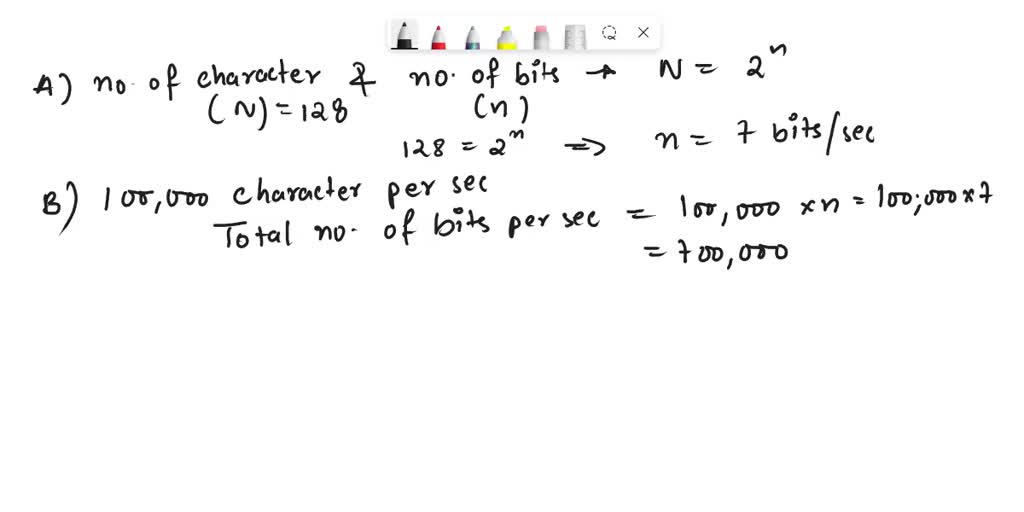 A) no. of character & no. of bits → N = 2^n
(N) = 128 (n)
128 = 2^n => n = 7 bits/sec
B) 100,000 character per sec
Total no. of bits per sec = 100,000 x n = 100,000 x 7
= 700,000